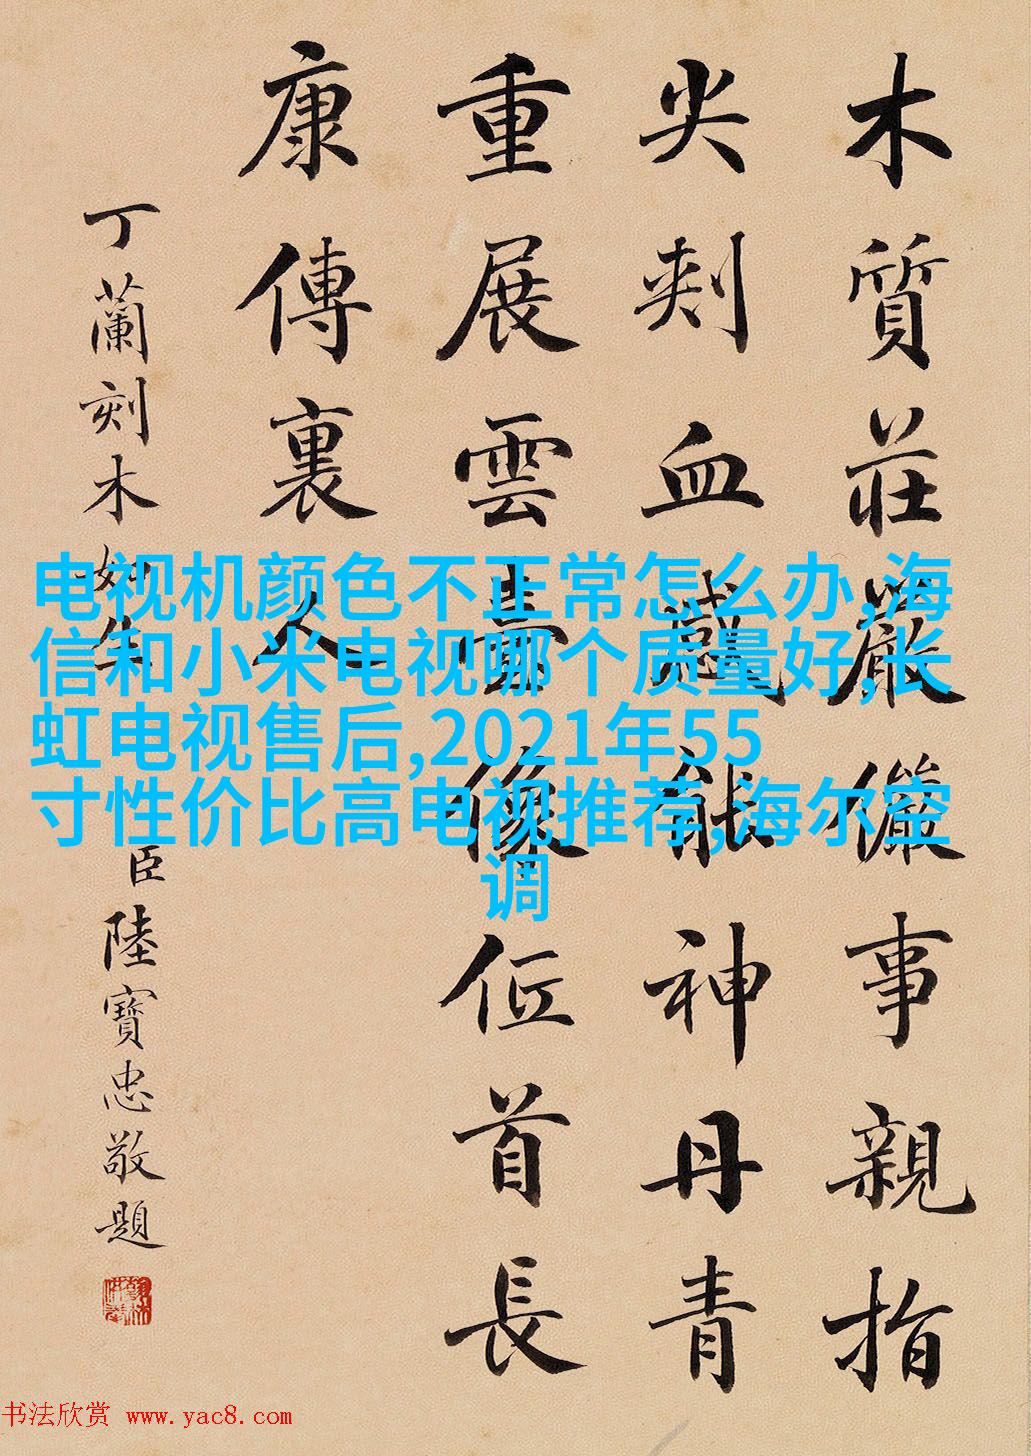 木質莊嚴儼事親指
尖刾血感能神丹青
重展雲臺像首長
康傳裏人
丁蘭刻木如生
臣陸寶忠敬題
电视机颜色不正常怎么办,海
信和小米电视哪个质量好,长
虹电视售后,2021年55
寸性价比高电视推荐,海尔空
调
书法欣赏 www.yac8.com